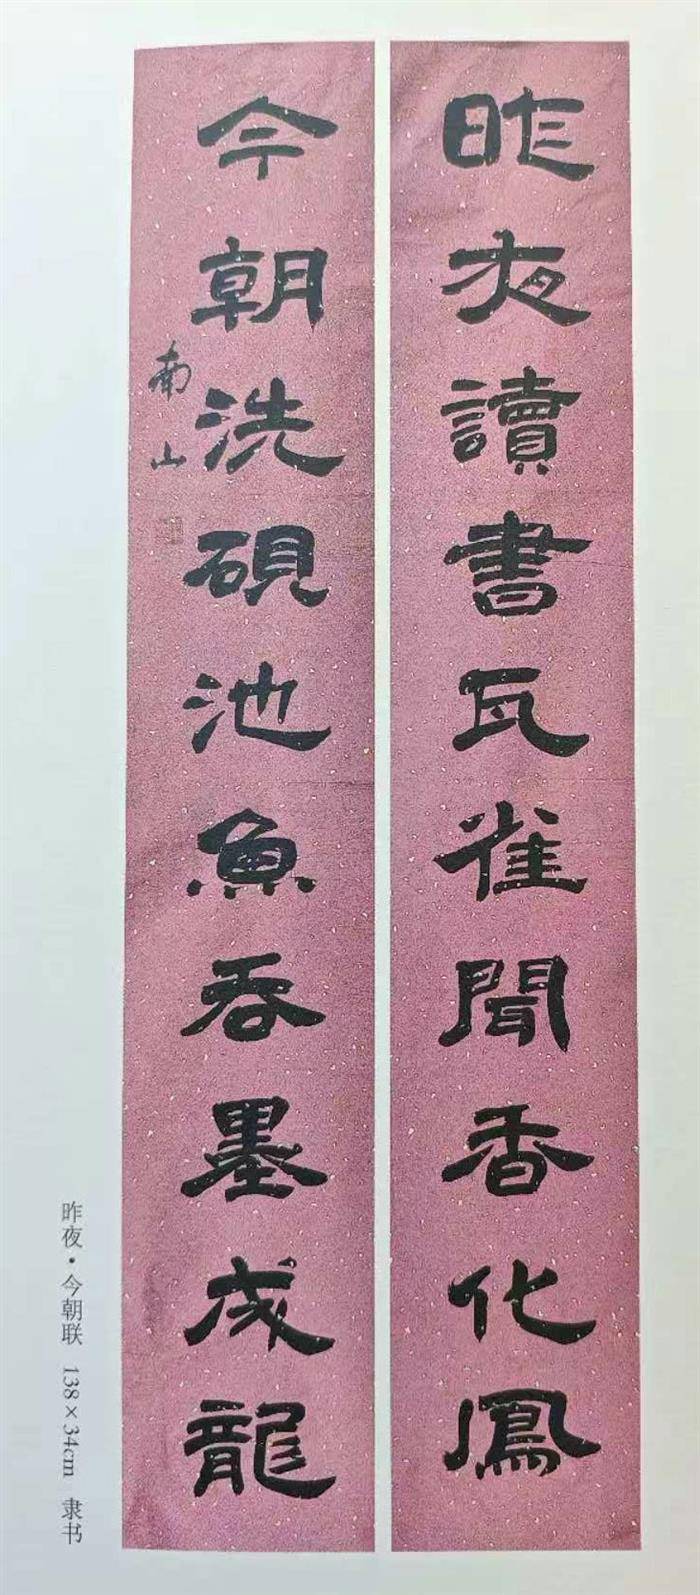 昨夜讀書瓦雀聞香化鳳
今朝洗硯池魚吞墨成龍
南山
昨夜·今朝联 138×34cm 隶书